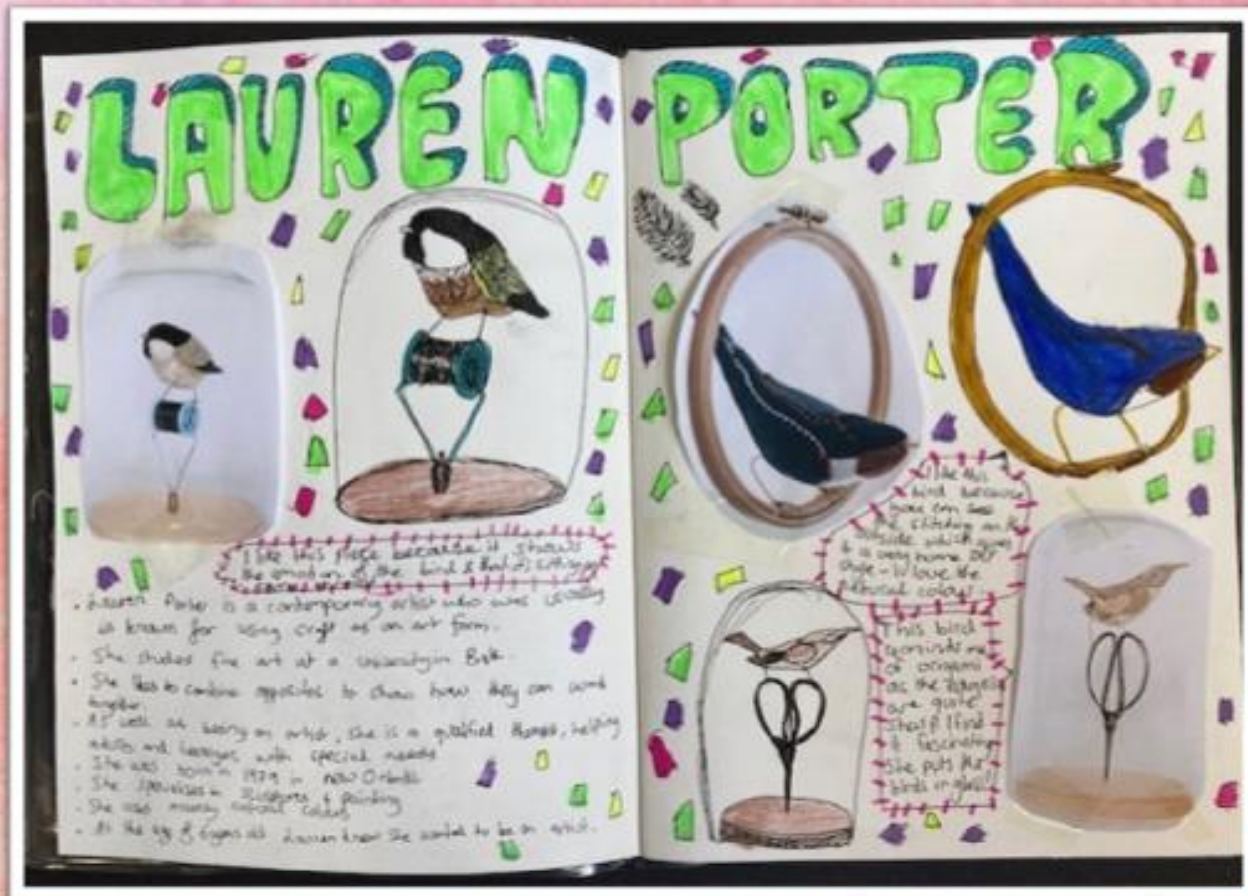 LAUREN PORTER
I like this piece because it shows
the emotion of the bird & that it's sitting on
- Lauren Porter is a contemporary artist who was usually
is known for using craft as an art form.
- She studied fine art at a university in Bath.
- She likes to combine opposites to show how they can work
together.
- As well as being an artist, she is a qualified, helping
adults and teenagers with special needs
- She was born in 1979 in new
- She specialises in sculpture & painting
- She uses mainly natural colours
- At the age of Lauren knew she wanted to be an artist.
I like this
bird because
you can see
the stitching on the
outside which gives
it a very home DIY
style - I love the
colour
This bird
reminds me
of origami
as the
are quite
sharp I find
it fascinating
She puts the
birds in glass!